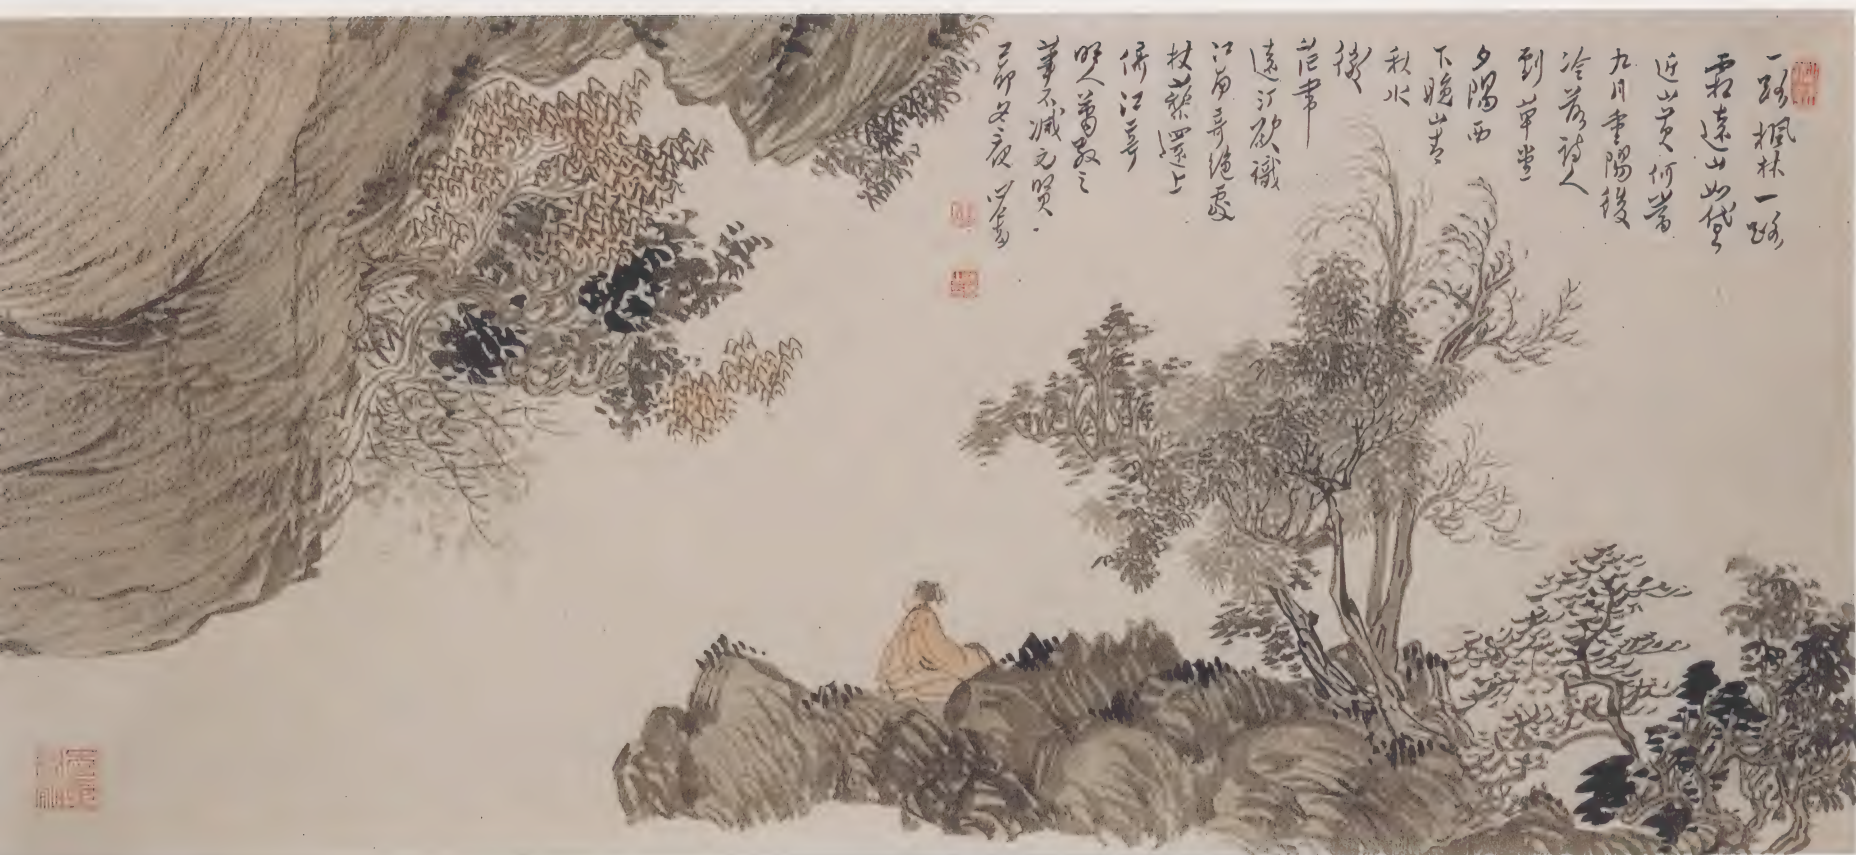 一路楓林一路
霜遠山如黛
近山黃何當
九月重陽後
冷落詩人
到草堂
夕陽西
下晚山青
秋水
微
茫帶
遠汀欲識
江南奇絕處
杖藜還上
江亭
明人蕭散之
筆不減元賢
己卯冬夜 心畬